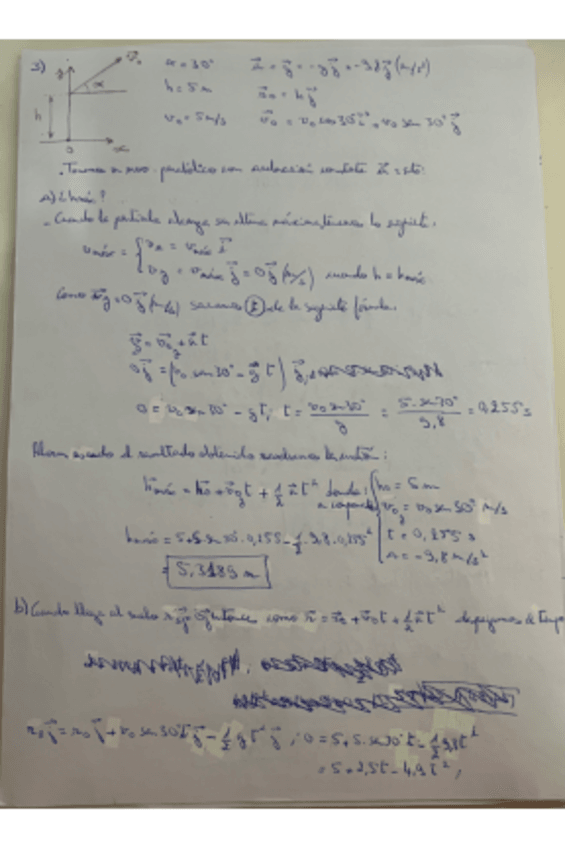 3) y v⃗₀ α = 30° a⃗ = g⃗ = -g j⃗ = -9,8 j⃗ (m/s²)
α h = 5 m r⃗₀ = h j⃗
h v₀ = 5 m/s v⃗₀ = v₀ cos 30° i⃗ + v₀ sen 30° j⃗
0 x
. Tenemos un mov. parabólico con aceleración constante a⃗ = cte.
a) ¿hmáx?
- Cuando la partícula alcanza su altura máxima tenemos lo siguiente:
vmáx = { vx = vmáx i⃗
vy = vmáx j⃗ = 0 j⃗ (m/s) cuando h = hmáx
Como v⃗y = 0 j⃗ (m/s) sacamos t de la siguiente fórmula:
v⃗y = v⃗₀y + a⃗ t
0 j⃗ = (v₀ sen 30° - g t) j⃗
0 = v₀ sen 30° - g t; t = v₀ sen 30° / g = 5 · sen 30° / 9,8 = 0,255 s
Ahora usando el resultado obtenido
h⃗máx = h⃗₀ + v⃗₀y t + 1/2 a⃗ t² donde: { h₀ = 5 m
v⃗₀y = v₀ sen 30° m/s
t = 0,255 s
a = -9,8 m/s²
hmáx = 5 + 5 · sen 30° · 0,255 - 1/2 · 9,8 · 0,255²
= 5,3189 m
b) Cuando llega al suelo como r⃗ = r⃗₀ + v⃗₀ t + 1/2 a⃗ t² despejamos
r₀ j⃗ + v₀ sen 30° t j⃗ - 1/2 g t² j⃗; 0 = 5 + 5 · sen 30° t - 1/2 9,8 t²
= 5 + 2,5 t - 4,9 t²;